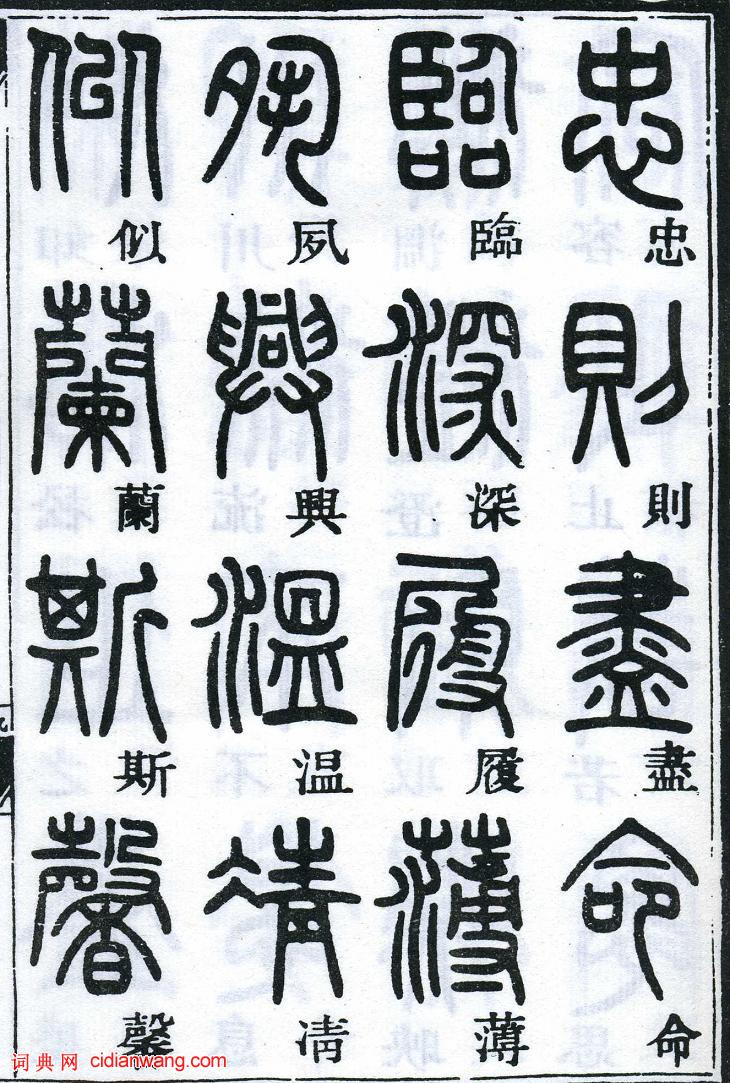 忠則盡命
臨深履薄
夙興温凊
似蘭斯馨
词典网 cidianwang.com